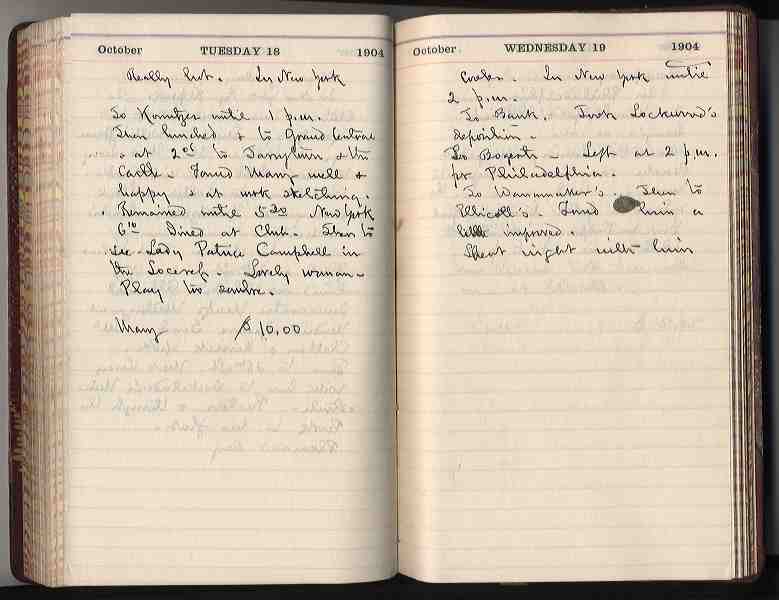 October TUESDAY 18 1904
Really hot. In New York
To Komitzer until 1 p.m.
Then lunched & to Grand Central
& at 2 to Tarrytown & the
Castle. Found Mary well &
happy & at work sketching.
Remained until 5 30 New York
6 10 Dined at Club. Then to
see Lady Patrice Campbell in
the Sorceress. Lovely woman.
Play too sombre.
Mary $10.00
October WEDNESDAY 19 1904
Cooler. In New York until
2 p.m.
To Bank. Took Lockwood's
deposition.
To Bogert's. Left at 2 p.m.
for Philadelphia.
To Wanamaker's. Then to
Ellicott's. Found him a
little improved.
Spent night with him